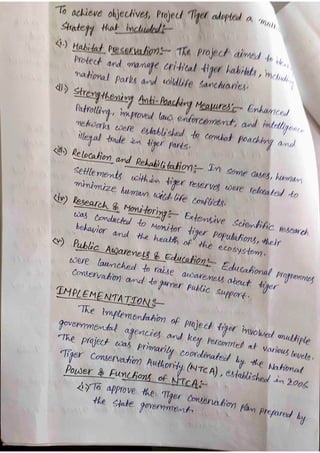 To achieve objectives, Project Tiger adopted a
Strategy that included:-
(i.) Habitat Preservation:- The project aimed to
Protect and manage critical tiger habitats, including
national parks and wildlife sanctuaries.
(ii) Strengthening Anti-Poaching Measures:- Enhanced
Patrolling, improved law enforcement, and intelligence
networks were established to combat poaching and
illegal trade in tiger parts.
(iii.) Relocation and Rehabilitation:- In some cases, human
Settlements within tiger reserves were relocated to
minimize human wild life conflicts.
(iv) Research & Monitoring:- Extensive Scientific research
was conducted to monitor tiger populations, their
behavior and the health of the ecosystem.
(v) Public Awareness & Education:- Educational programmes
were launched to raise awareness about tiger
Conservation and to garner public support.
IMPLEMENTATIONS:-
The implementation of project tiger involved multiple
governmental agencies and key personnel at various levels.
The project was primarily coordinated by the National
Tiger Conservation Authority (NTCA), established in 2006
Power & Functions of NTCA:-
To approve the Tiger Conservation plan prepared by
the State government.